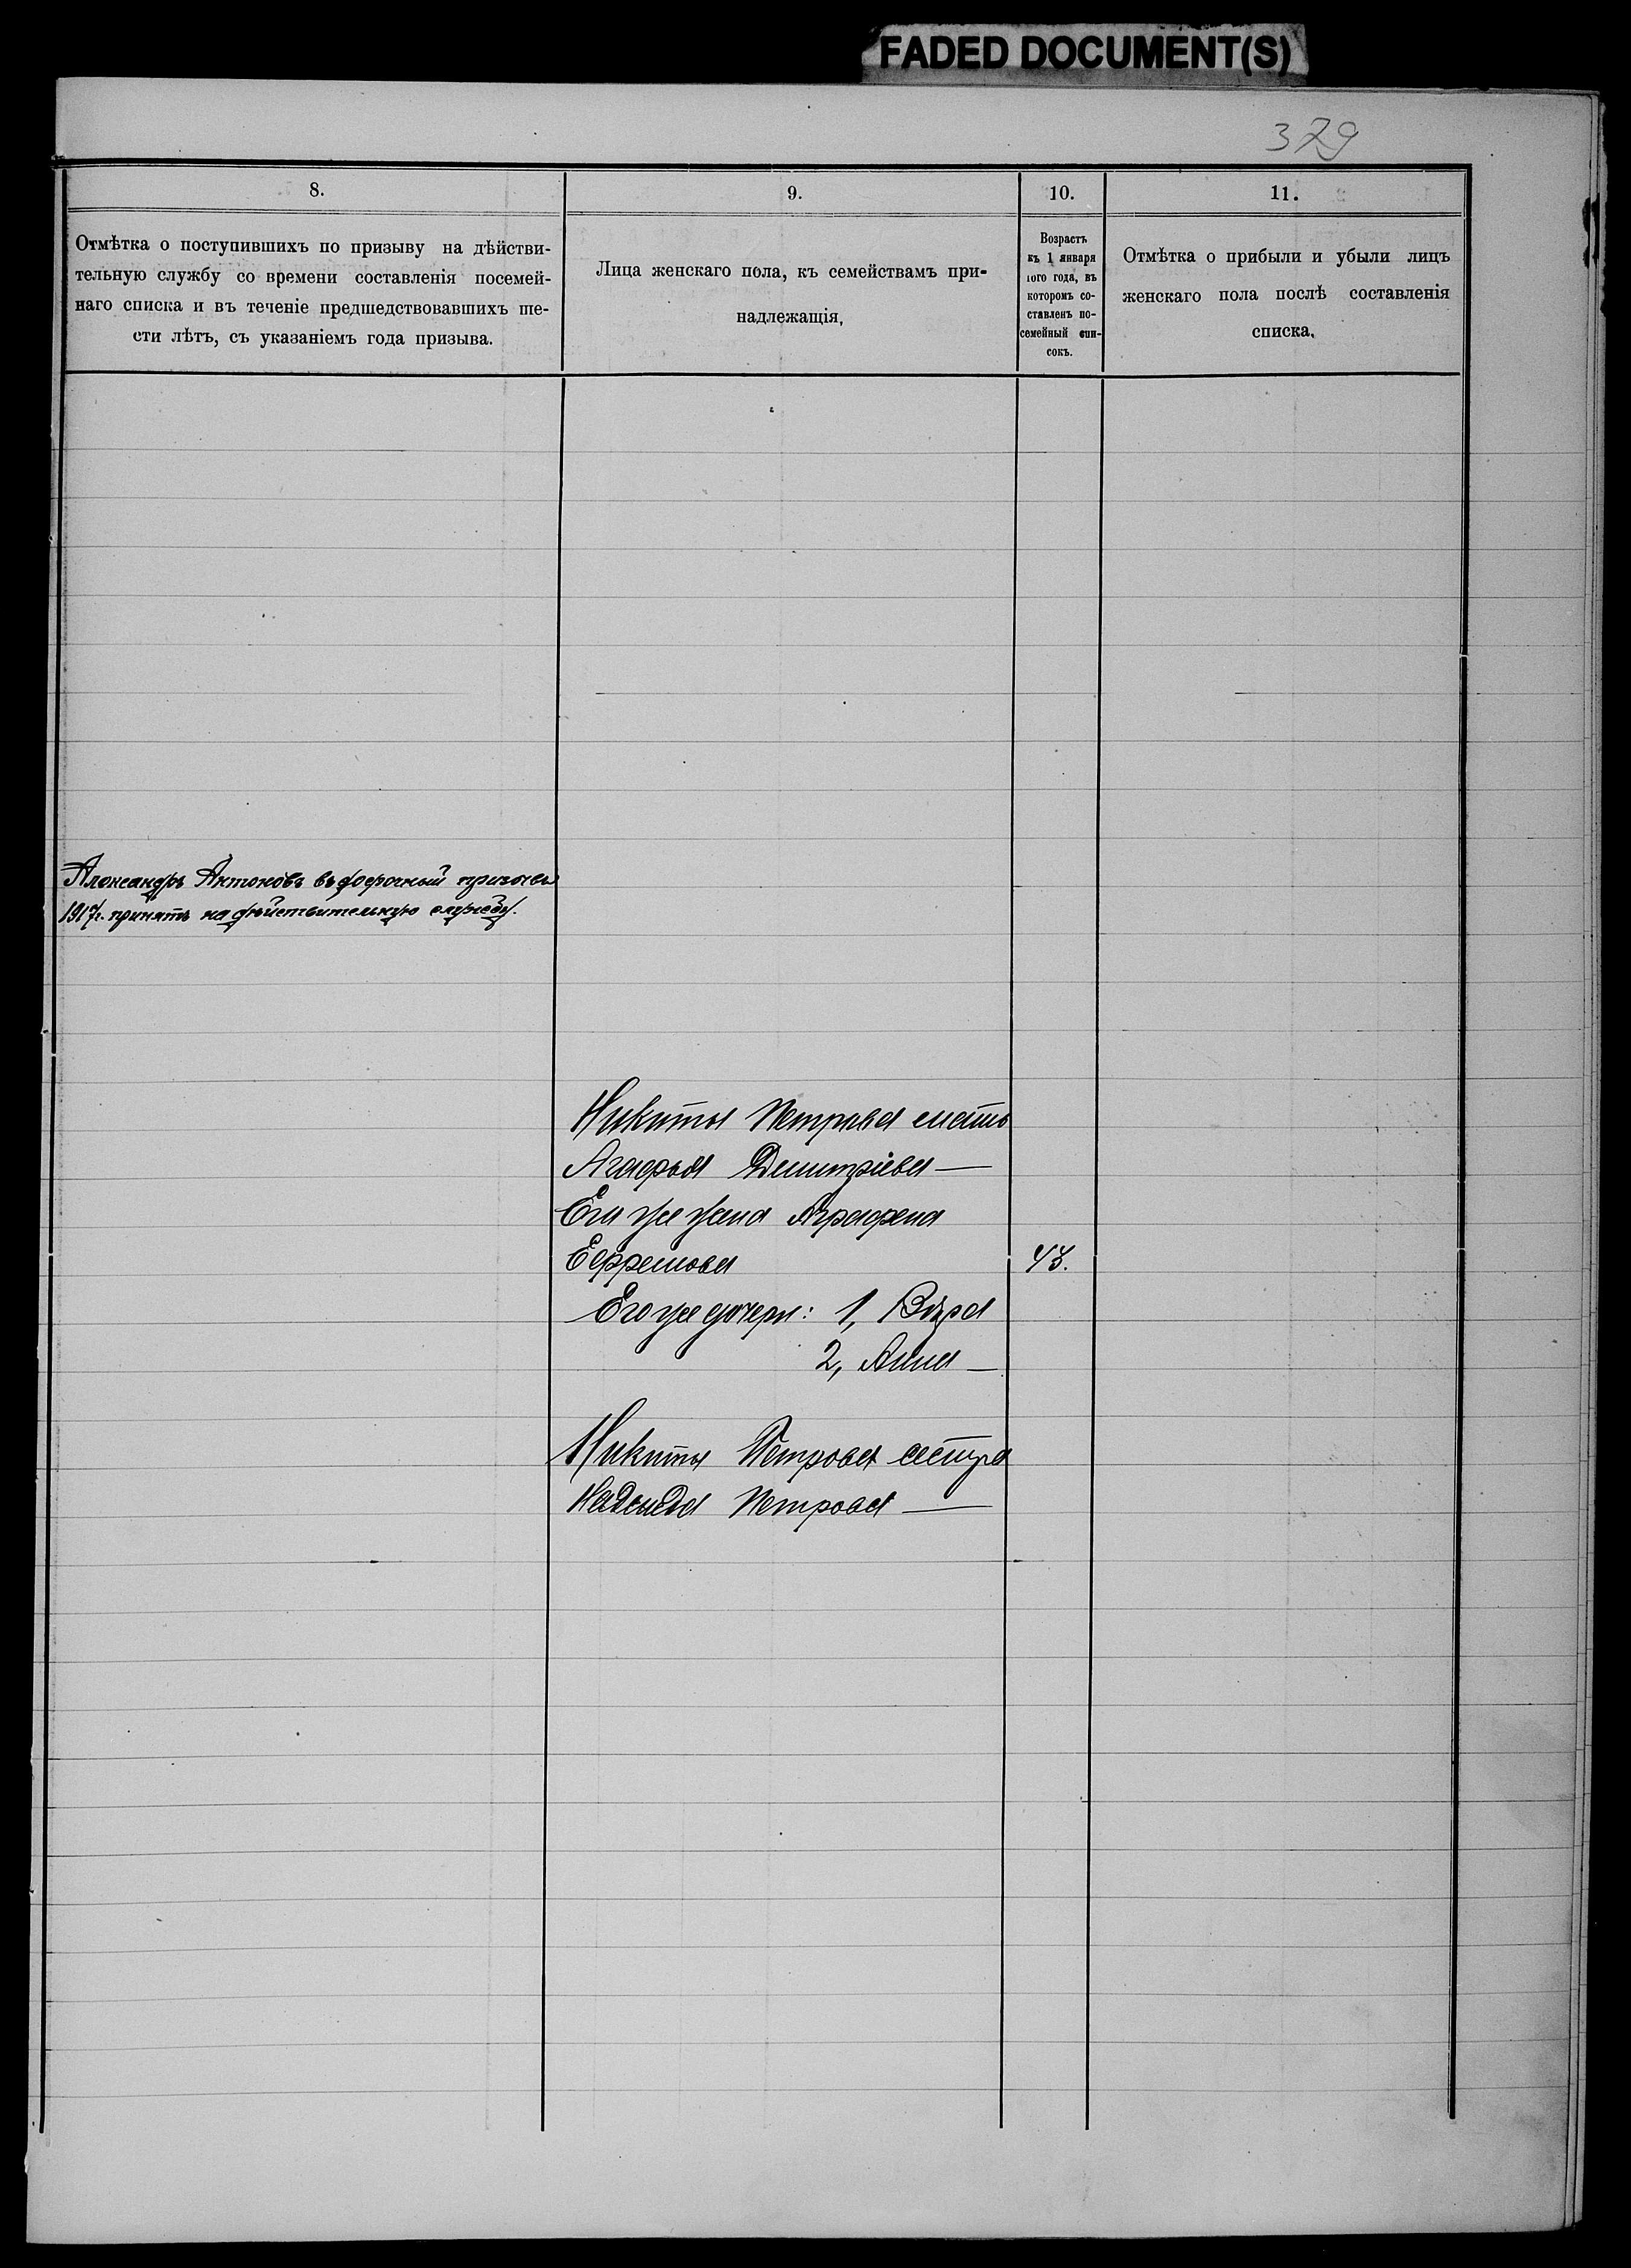 FADED DOCUMENT(S)
379
8.
9.
10.
11.
Отмѣтка о поступившихъ по призыву на дѣйстви-
тельную службу со времени составленія посемей-
наго списка и въ теченіе предшедствовавшихъ ше-
сти лѣтъ, съ указаніемъ года призыва.
Лица женскаго пола, къ семействамъ при-
надлежащія,
Возрастъ
къ 1 января
того года, въ
которомъ со-
ставленъ по-
семейный спи-
сокъ.
Отмѣтка о прибыли и убыли лицъ
женскаго пола послѣ составленія
списка.
Александръ Антоновъ въ досрочный призывъ
1917г. принятъ на дѣйствительную службу.
Никиты Петрова мать
Агафья Дмитріева —
Его же жена Аграфена
Ефремова 43.
Его же дочери: 1, Вѣра
2, Анна —
Никиты Петрова сестра
Надежда Петрова —